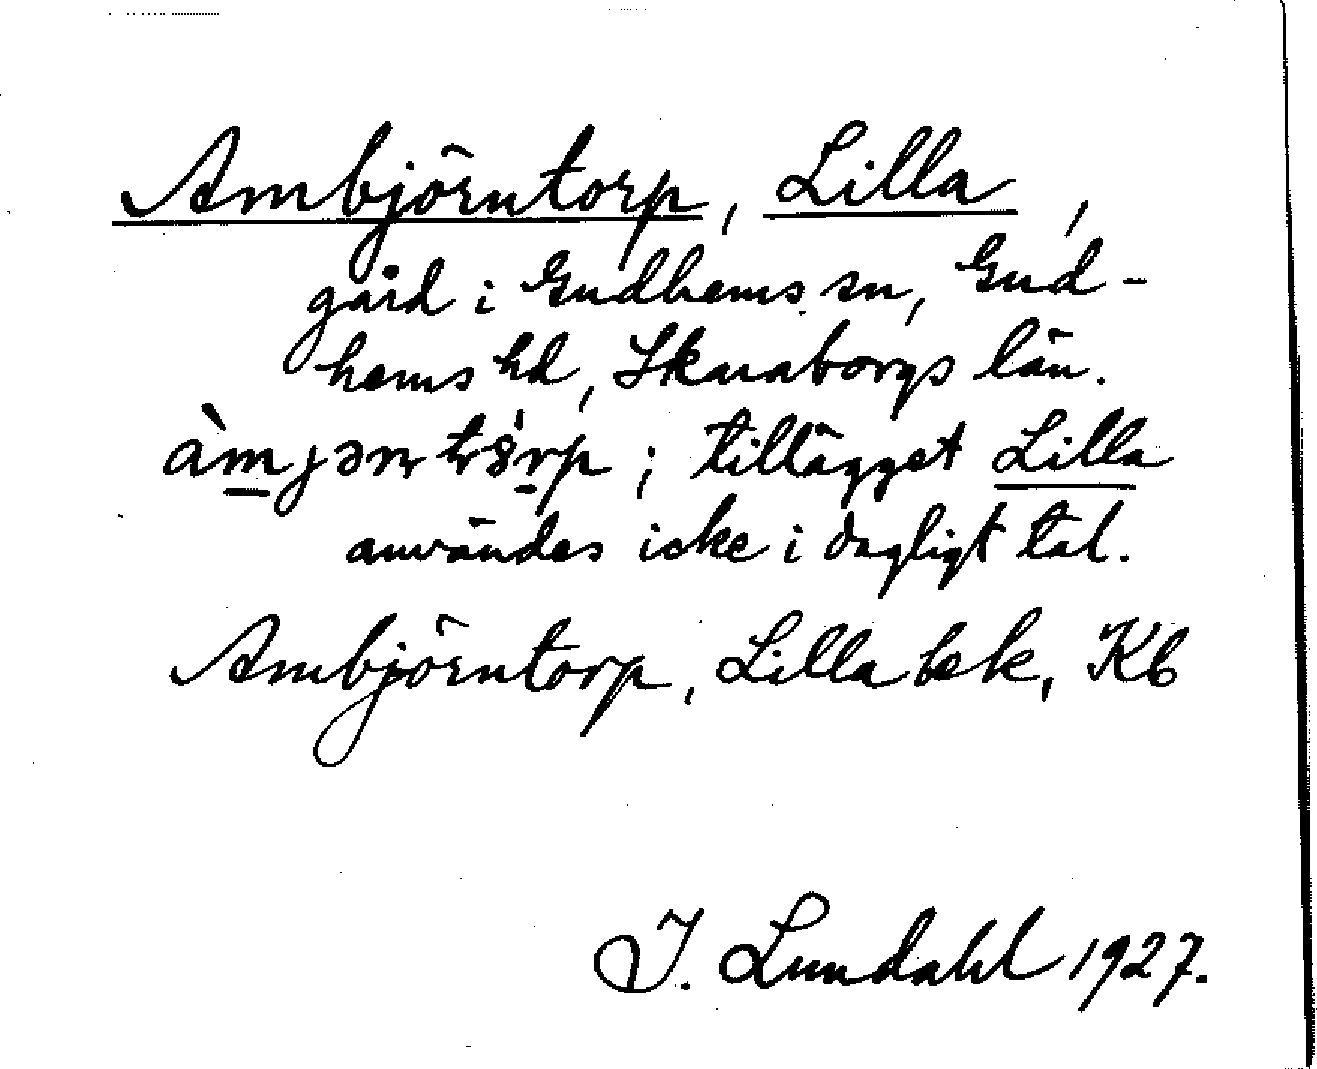 Ambjörntorp, Lilla,
gård i Gudhems sn, Gud-
hems hd, Skaraborgs län.
tillägget Lilla
användes icke i dagligt tal.
Ambjörntorp, Lilla bek, Kb
I. Lundahl 1927.